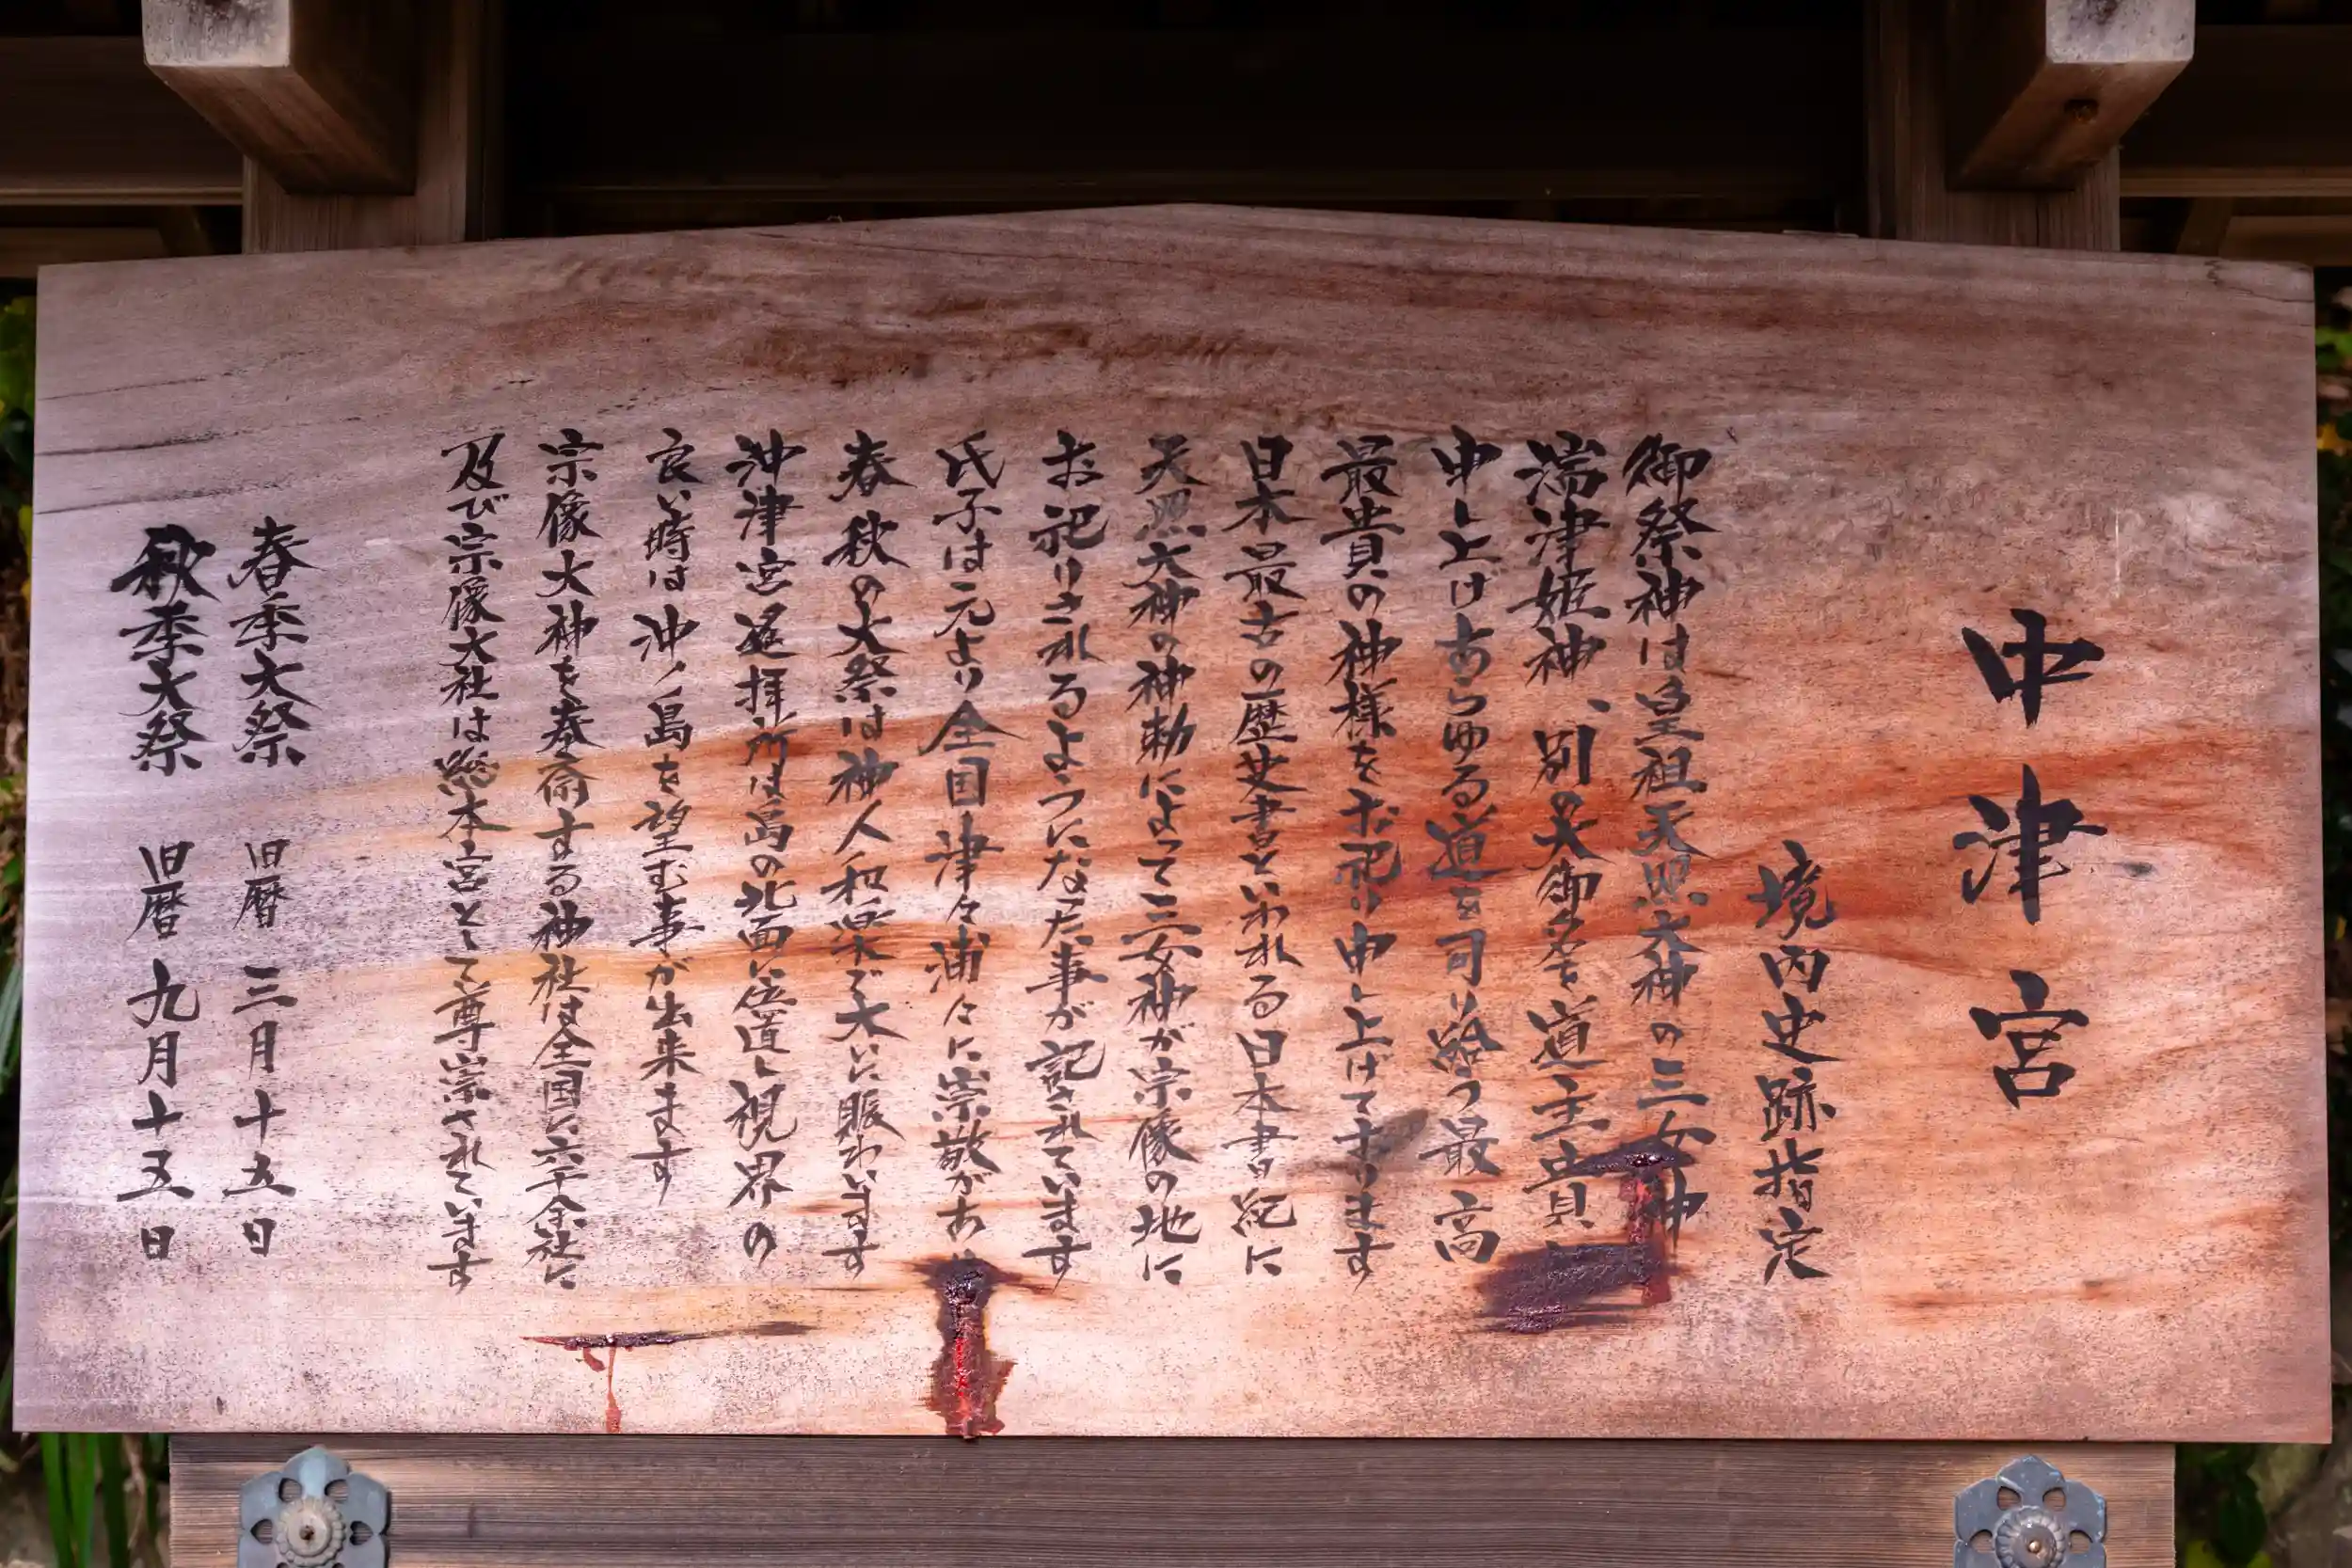 中津宮
境内史跡指定
御祭神は皇祖天照大神の三女神
湍津姫神、別の大御名を道主貴
申し上げあらゆる道を司り給う最高
最貴の神様をお祀り申し上げております
日本最古の歴史書といわれる日本書紀に
天照大神の神勅によって三女神が宗像の地に
お祀りされるようになった事が記されています
氏子は元より全国津々浦々に崇敬があ
春秋の大祭は神人和楽で大いに賑わいます
沖津宮遥拝所は島の北面に位置し視界の
良い時は沖ノ島を望む事が出来ます
宗像大神を奉斎する神社は全国に六千余社に
及び宗像大社は総本宮として尊崇されています
春季大祭 旧暦 三月十五日
秋季大祭 旧暦 九月十五日